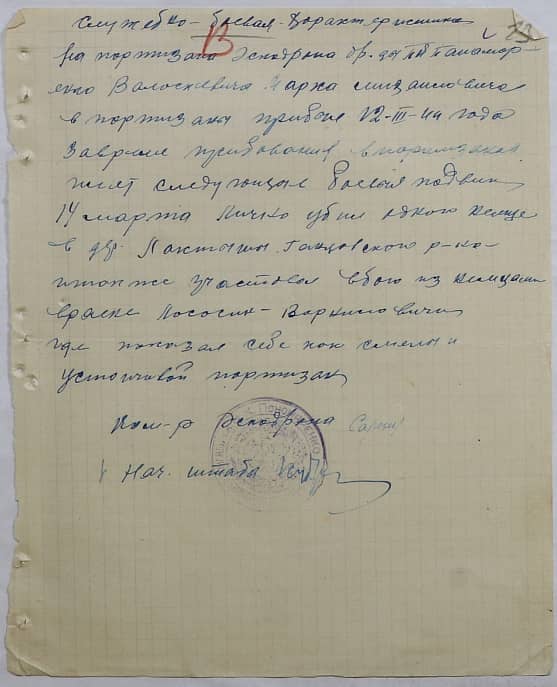 Служебко-боевая характеристика
В
на портизана Эскодрона бр. Понамар-
енко Валоскевича Марка михаиловича
в портизаны прибыл 12-III-44 года
За время прибования в портизанах
имеет следующия боевыя подвиги
14 марта Лично убил одного немца
в дер. Локтыши Ганцовского р-на
также участвовал в бою из немцами
Лососин -
где показал себе как смелый и
устойчивой портизан
Ком-р эскодрона
Нач. штаба